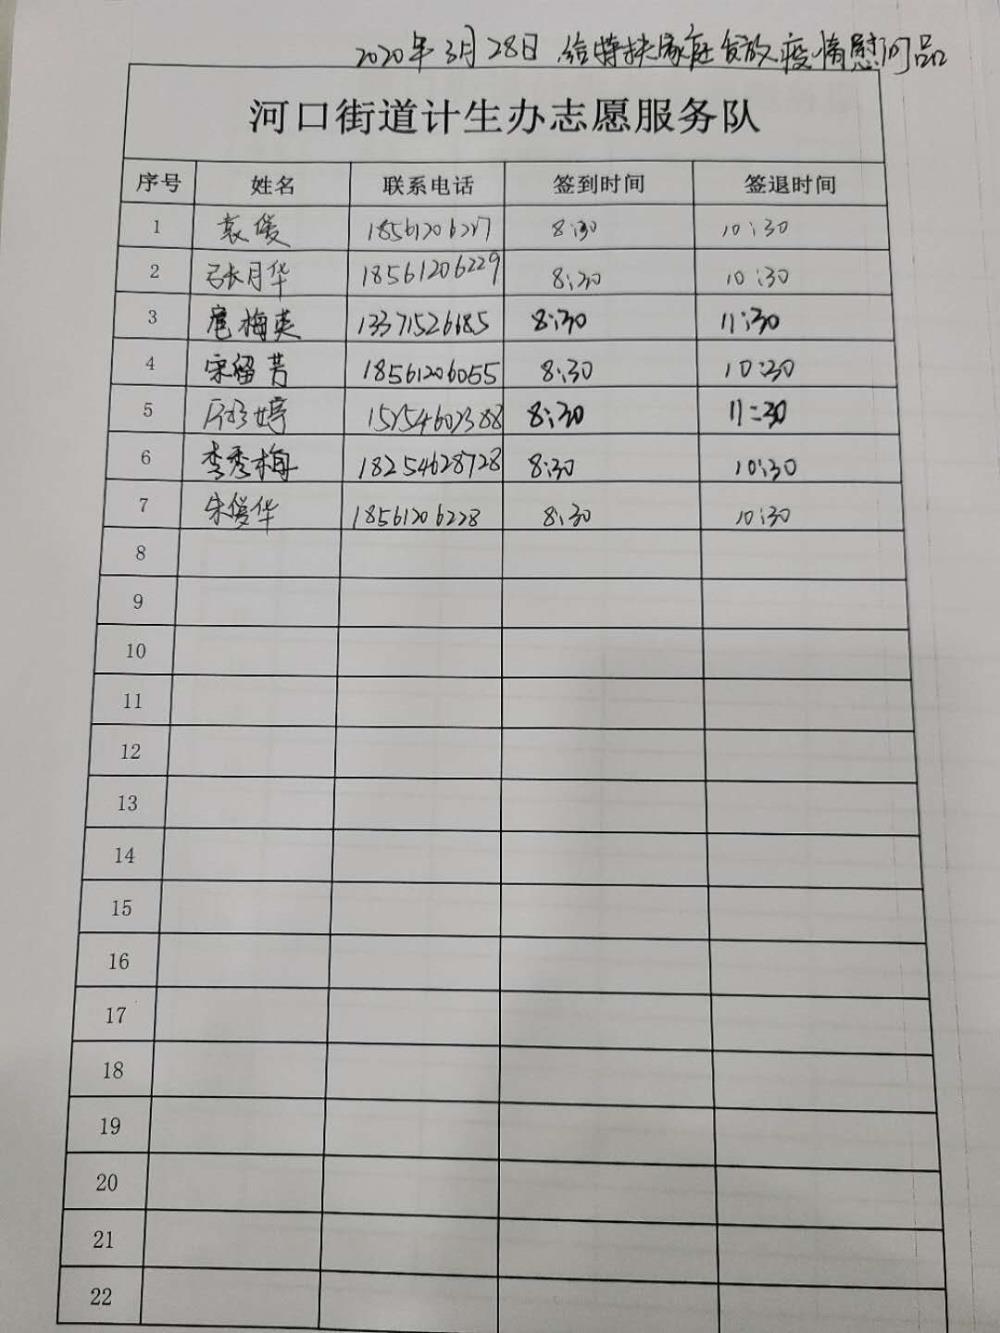 2020年3月28日 给特扶家庭发放疫情慰问品
河口街道计生办志愿服务队
序号 姓名 联系电话 签到时间 签退时间
1 袁俊 18561206227 8:30 10:30
2 张月华 18561206229 8:30 10:30
3 扈梅英 13371526685 8:30 11:30
4 宋留芳 18561206055 8:30 10:30
5 婷 8:30 11:30
6 李秀梅 18254628728 8:30 10:30
7 朱俊华 18561206228 8:30 10:30
8
9
10
11
12
13
14
15
16
17
18
19
20
21
22